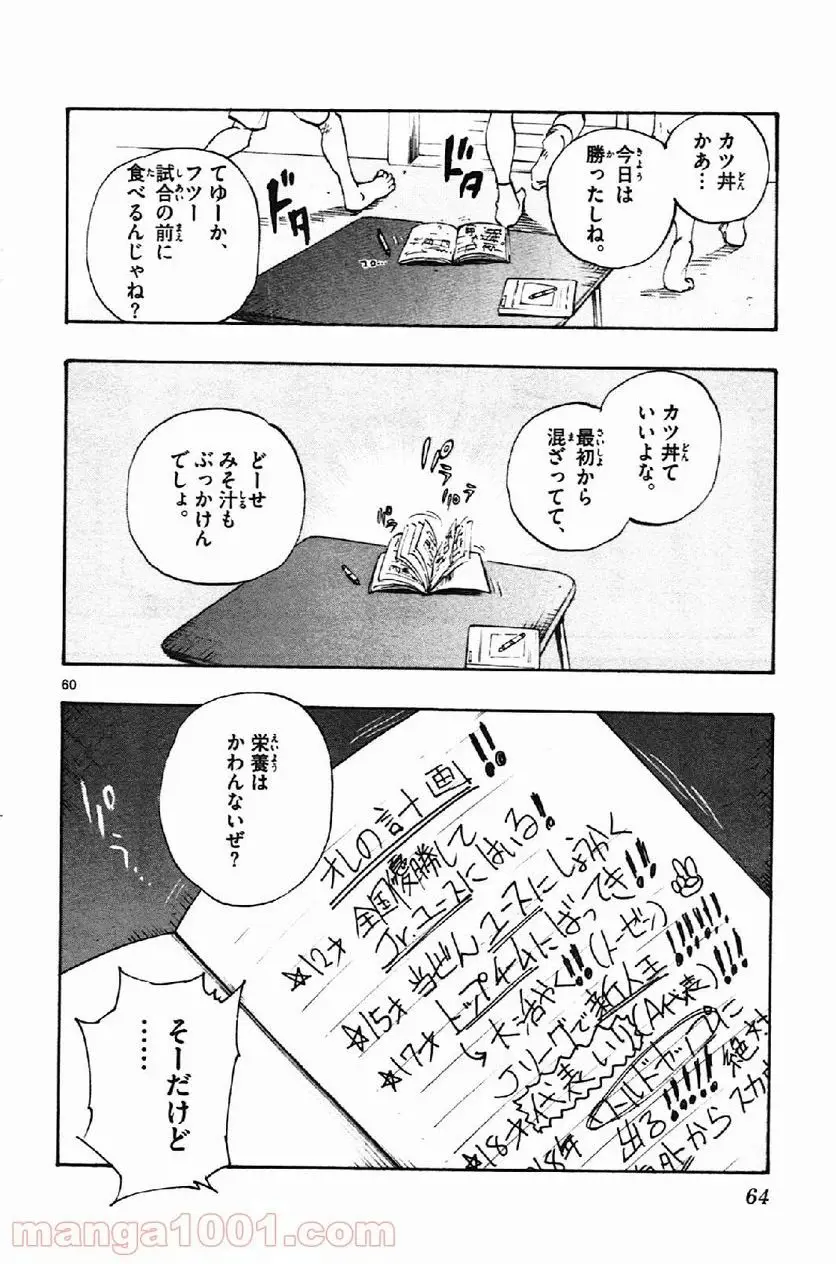 カツ丼
かぁ…
今日は
勝ったしね。
てゆーか、
フツー
試合の前に
食べるんじゃね？
ドタ
ドタ
コロ…
カツ丼て
いいよな。
最初から
混ざってて、
どーせ
みそ汁も
ぶっかけん
でしょ。
パラ
パラ
60
栄養は
かわんないぜ？
オレの計画!!
☆12才 全国優勝して
Jrユースにはいる!
☆15才 当ぜんユースにしょうかく
☆17才 トップチームにばってき!!
→大活やく!!(トーゼン)
Jリーグで新人王!!!!!!
☆18才 代表いり(A代表)!!!
出る!!!!! 絶対
からスカ
そーだけど
……
64
manga1001.com